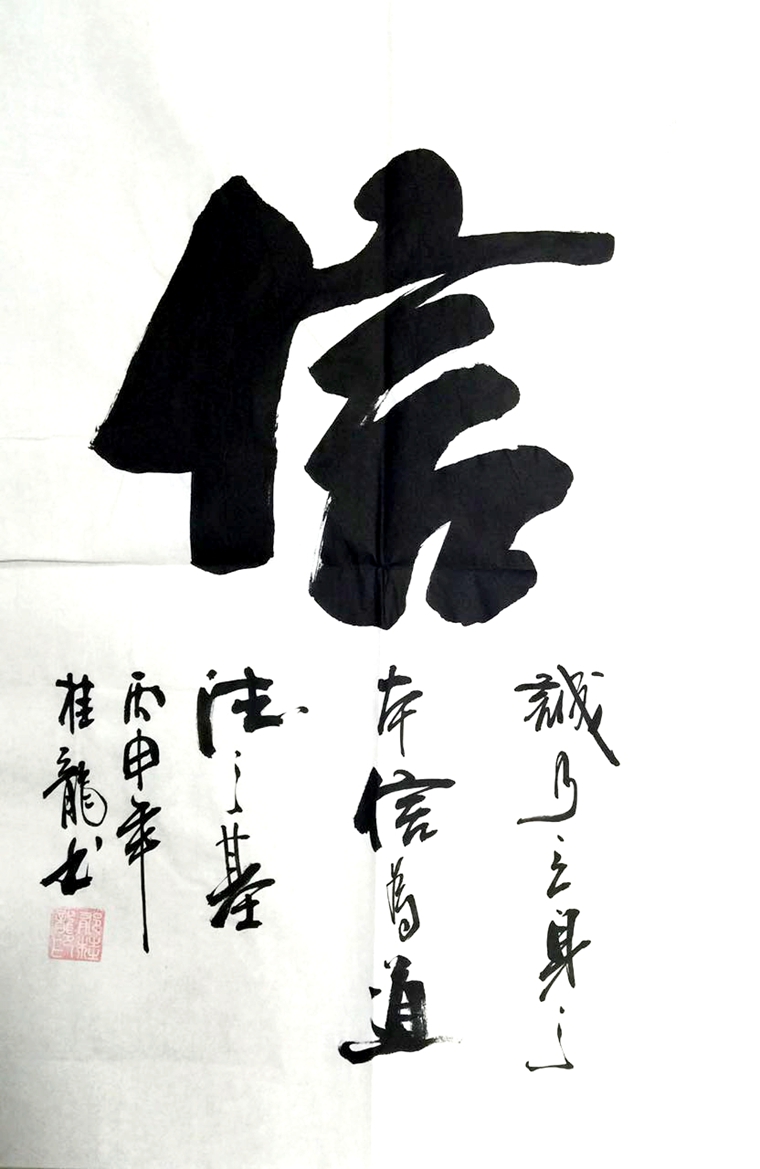 信
誠乃立身之
本信為道
德之基
丙申年
桂龍书